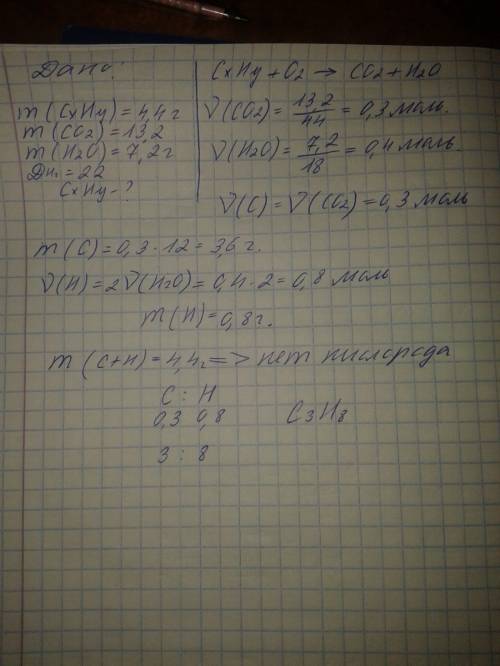 Дано:
m(CxHy)=4,4г
m(CO2)=13,2
m(H2O)=7,2г
DH2=22
CxHy-?
CxHy+O2→CO2+H2O
ν(CO2)=13,2/44=0,3моль.
ν(H2O)=7,2/18=0,4моль.
ν(C)=ν(CO2)=0,3моль
m(C)=0,3·12=3,6г.
ν(H)=2ν(H2O)=0,4·2=0,8моль
m(H)=0,8г.
m(C+H)=4,4г=>нет кислорода
C:H
0,3 0,8 C3H8
3:8